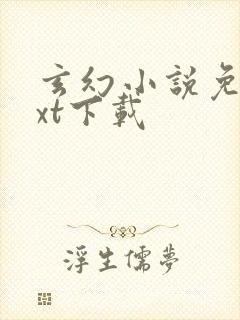 玄幻小説免
xt下載
浮生儒夢